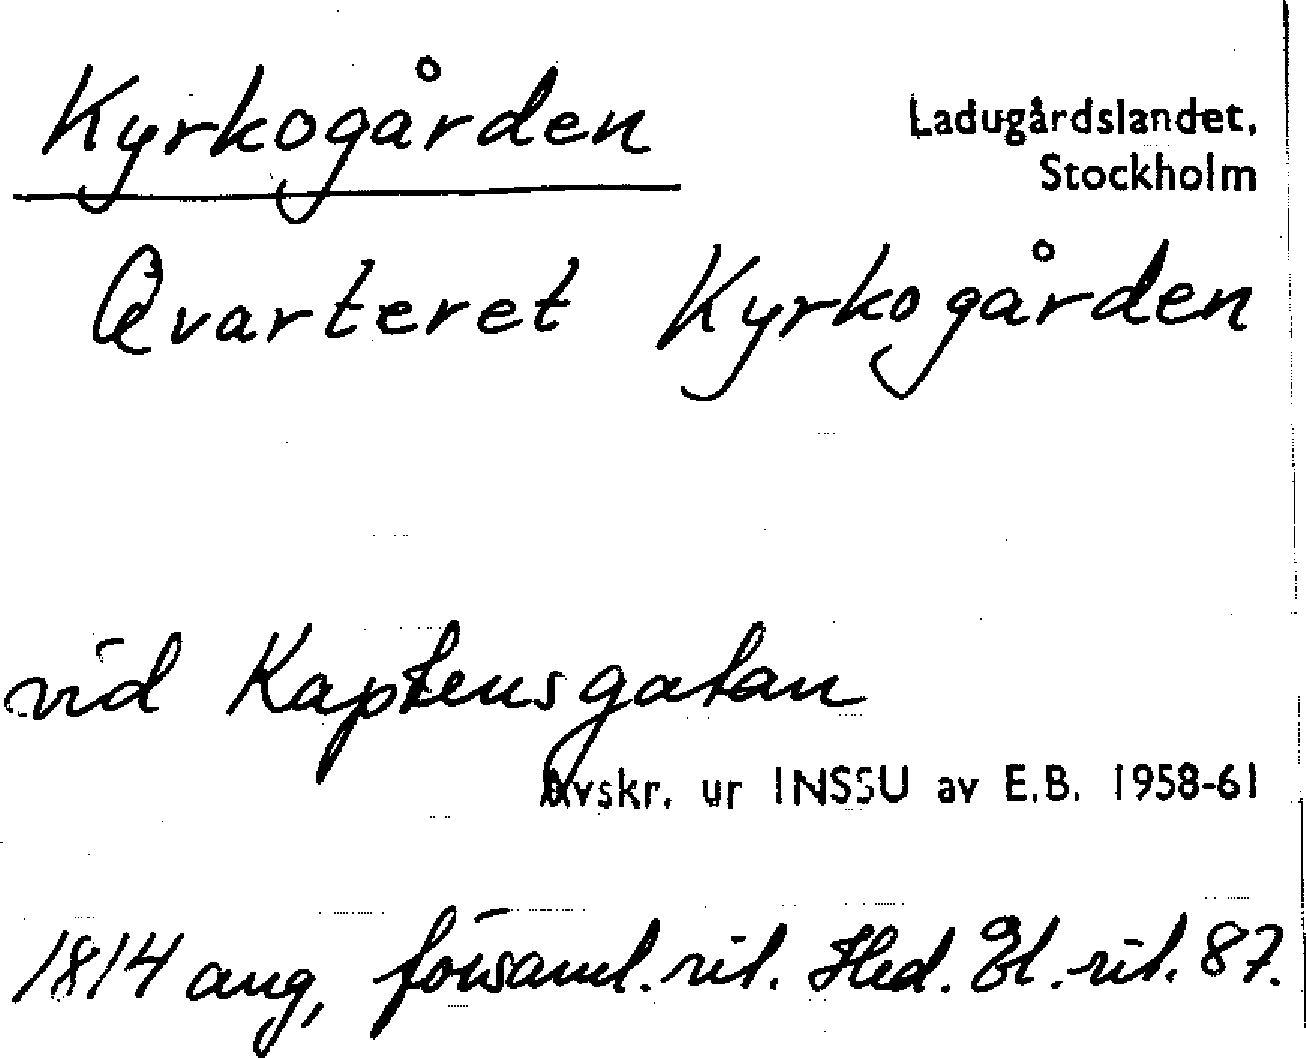 Kyrkogården
Ladugårdslandet,
Stockholm
Qvarteret Kyrkogården
vid Kaptensgatan
Avskr. ur INSSU av E.B. 1958-61
1814 aug, församl. rit. Hed. El. rit. 87.